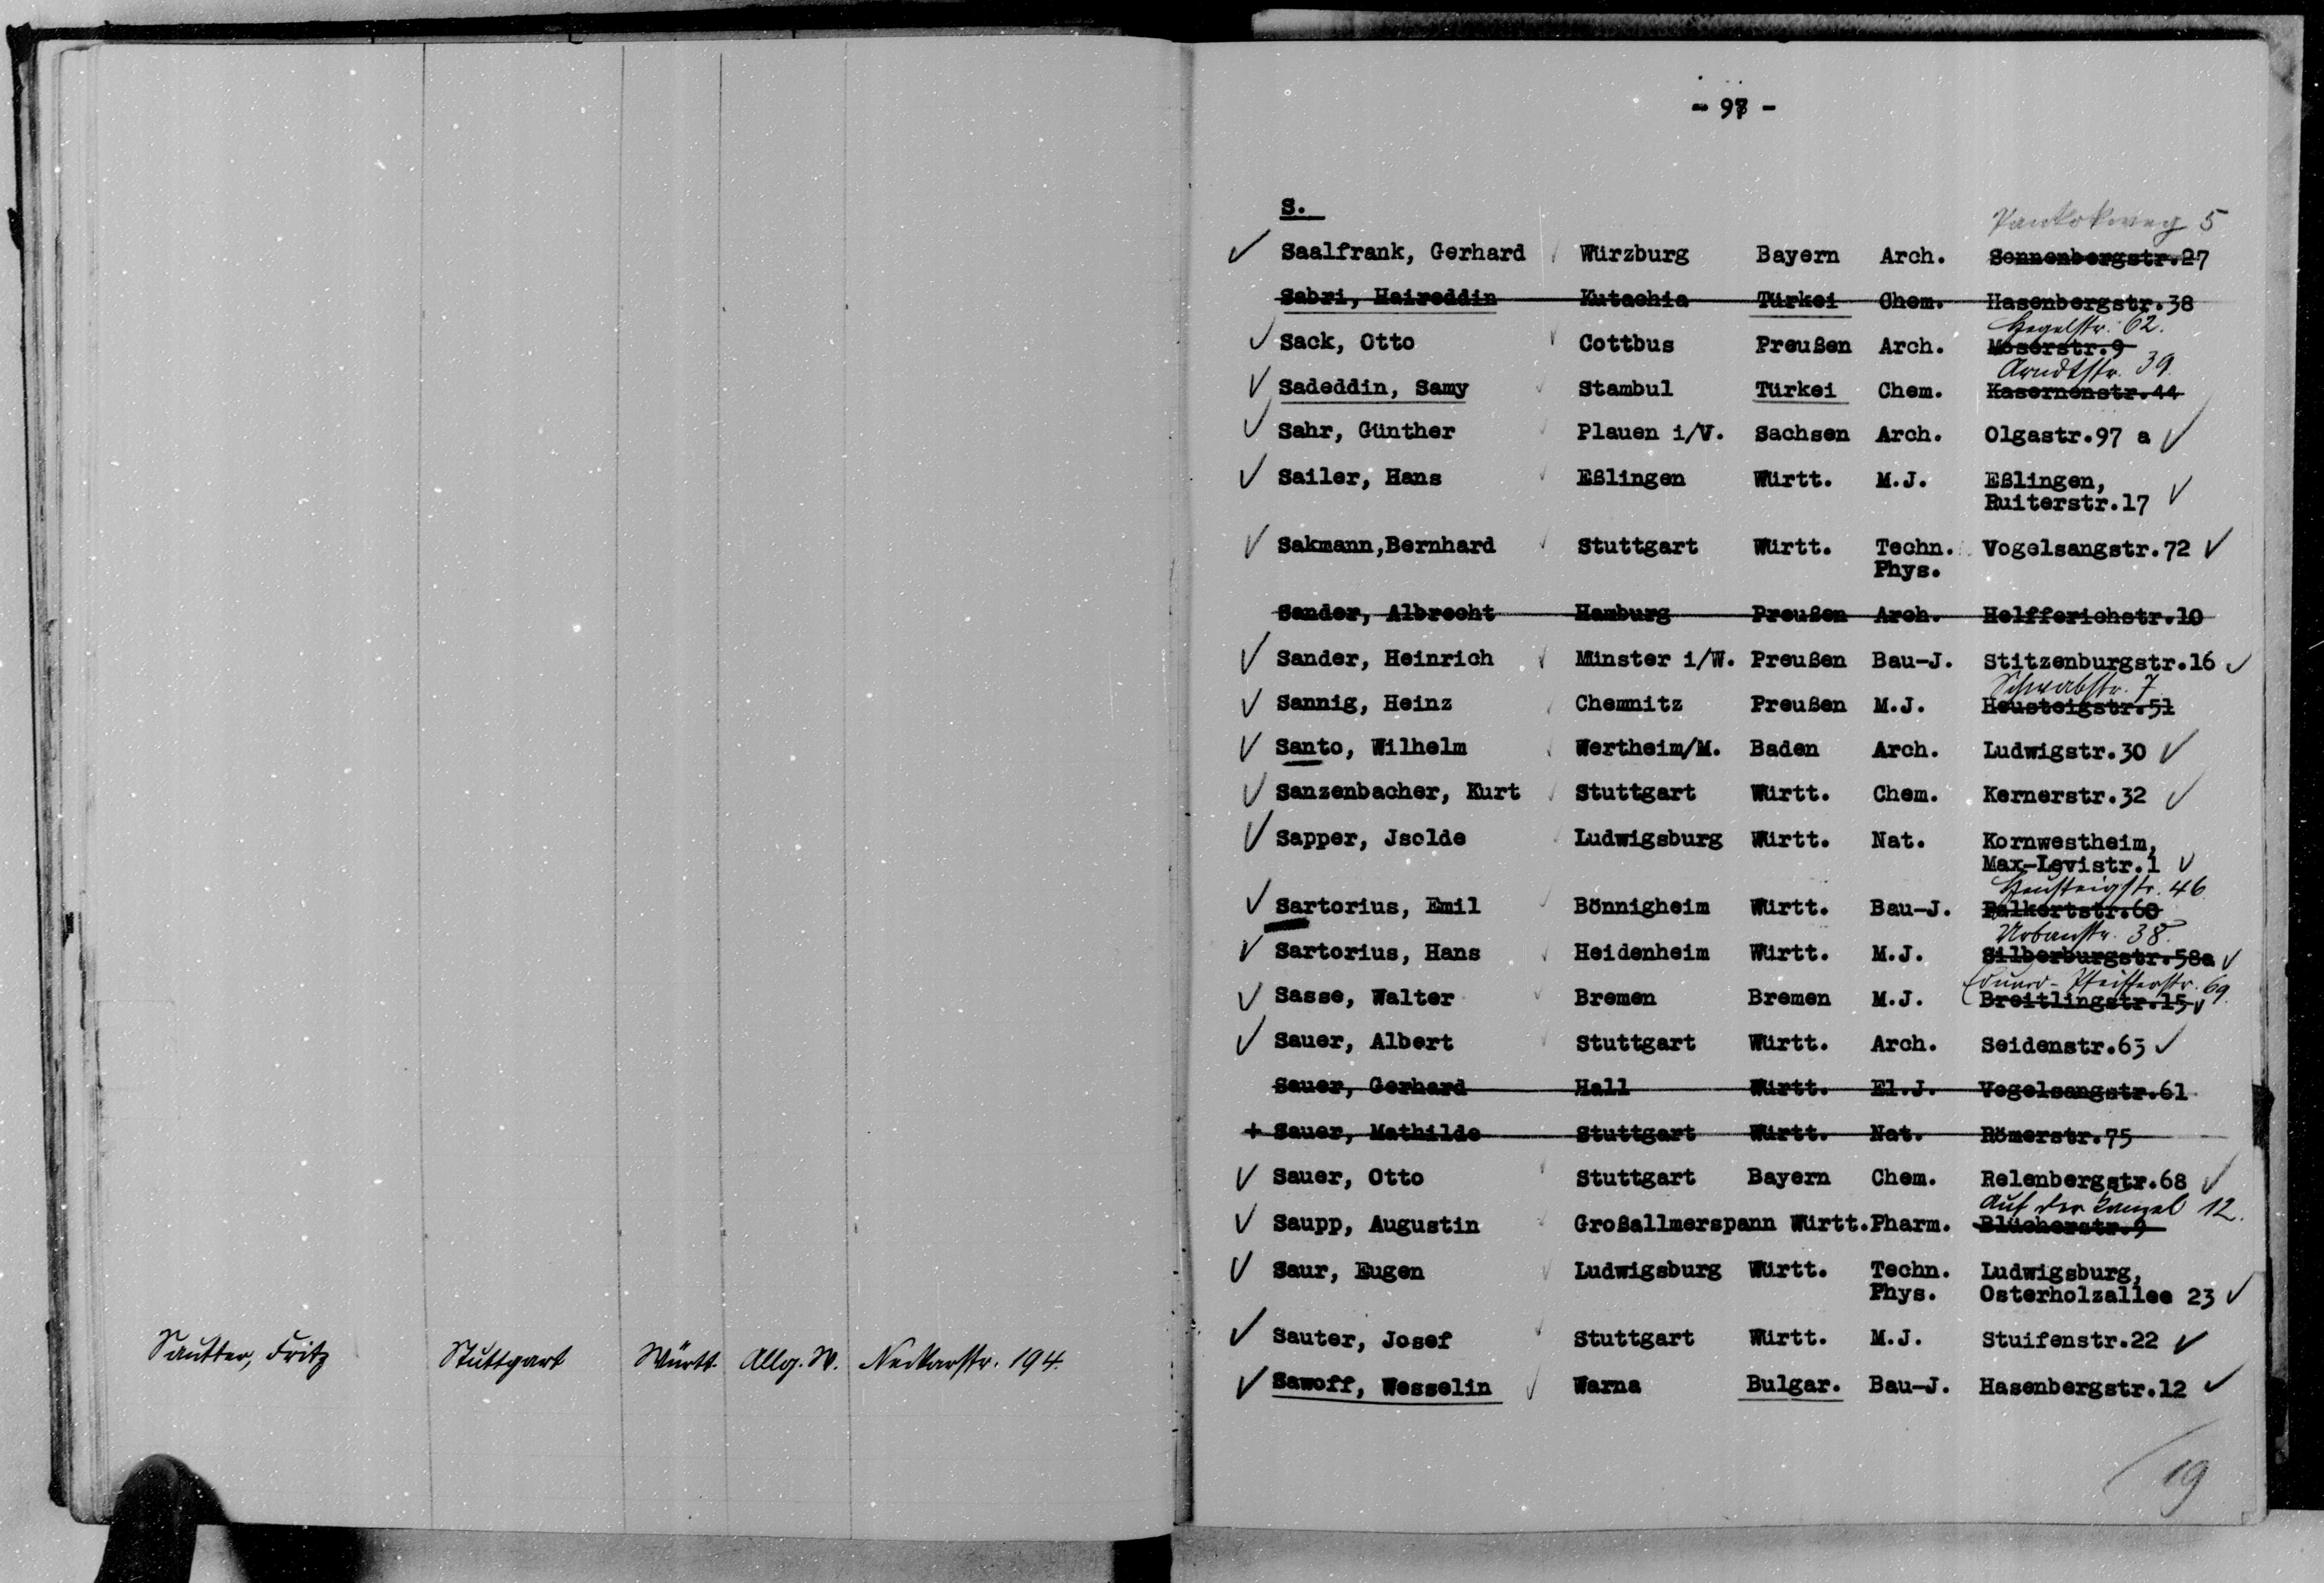 Sautter, Fritz Stuttgart Württ. Allg. W. Neckarstr. 194.
- 98 -
S.
Pankokweg 5
Saalfrank, Gerhard Würzburg Bayern Arch. Sonnenbergstr.27
Sabri, Haireddin Kutachia Türkei Chem. Hasenbergstr.38
Hegelstr. 62.
Sack, Otto Cottbus Preußen Arch. Moserstr.9
Arndtstr. 39.
Sadeddin, Samy Stambul Türkei Chem. Kasernenstr.44
Sahr, Günther Plauen i/V. Sachsen Arch. Olgastr.97 a
Sailer, Hans Eßlingen Württ. M.J. Eßlingen,
Ruiterstr.17
Sakmann,Bernhard Stuttgart Württ. Techn. Vogelsangstr.72
Phys.
Sander, Albrecht Hamburg Preußen Arch. Helfferichstr.10
Sander, Heinrich Münster i/W. Preußen Bau-J. Stitzenburgstr.16
Schwabstr. 7
Sannig, Heinz Chemnitz Preußen M.J. Heusteigstr.51
Santo, Wilhelm Wertheim/M. Baden Arch. Ludwigstr.30
Sanzenbacher, Kurt Stuttgart Württ. Chem. Kernerstr.32
Sapper, Jsolde Ludwigsburg Württ. Nat. Kornwestheim,
Max-Levistr.1
Heusteigstr. 46
Sartorius, Emil Bönnigheim Württ. Bau-J. Falkertstr.60
Urbanstr. 38.
Sartorius, Hans Heidenheim Württ. M.J. Silberburgstr.58a
Eduard-Pfeifferstr. 69.
Sasse, Walter Bremen Bremen M.J. Breitlingstr.15
Sauer, Albert Stuttgart Württ. Arch. Seidenstr.63
Sauer, Gerhard Hall Württ. El.J. Vogelsangstr.61
+ Sauer, Mathilde Stuttgart Württ. Nat. Römerstr.75
Sauer, Otto Stuttgart Bayern Chem. Relenbergstr.68
Auf der Kanzel 12.
Saupp, Augustin Großallmerspann Württ.Pharm. Blücherstr.9
Saur, Eugen Ludwigsburg Württ. Techn. Ludwigsburg,
Phys. Osterholzallee 23
Sauter, Josef Stuttgart Württ. M.J. Stuifenstr.22
Sawoff, Wesselin Warna Bulgar. Bau-J. Hasenbergstr.12
19